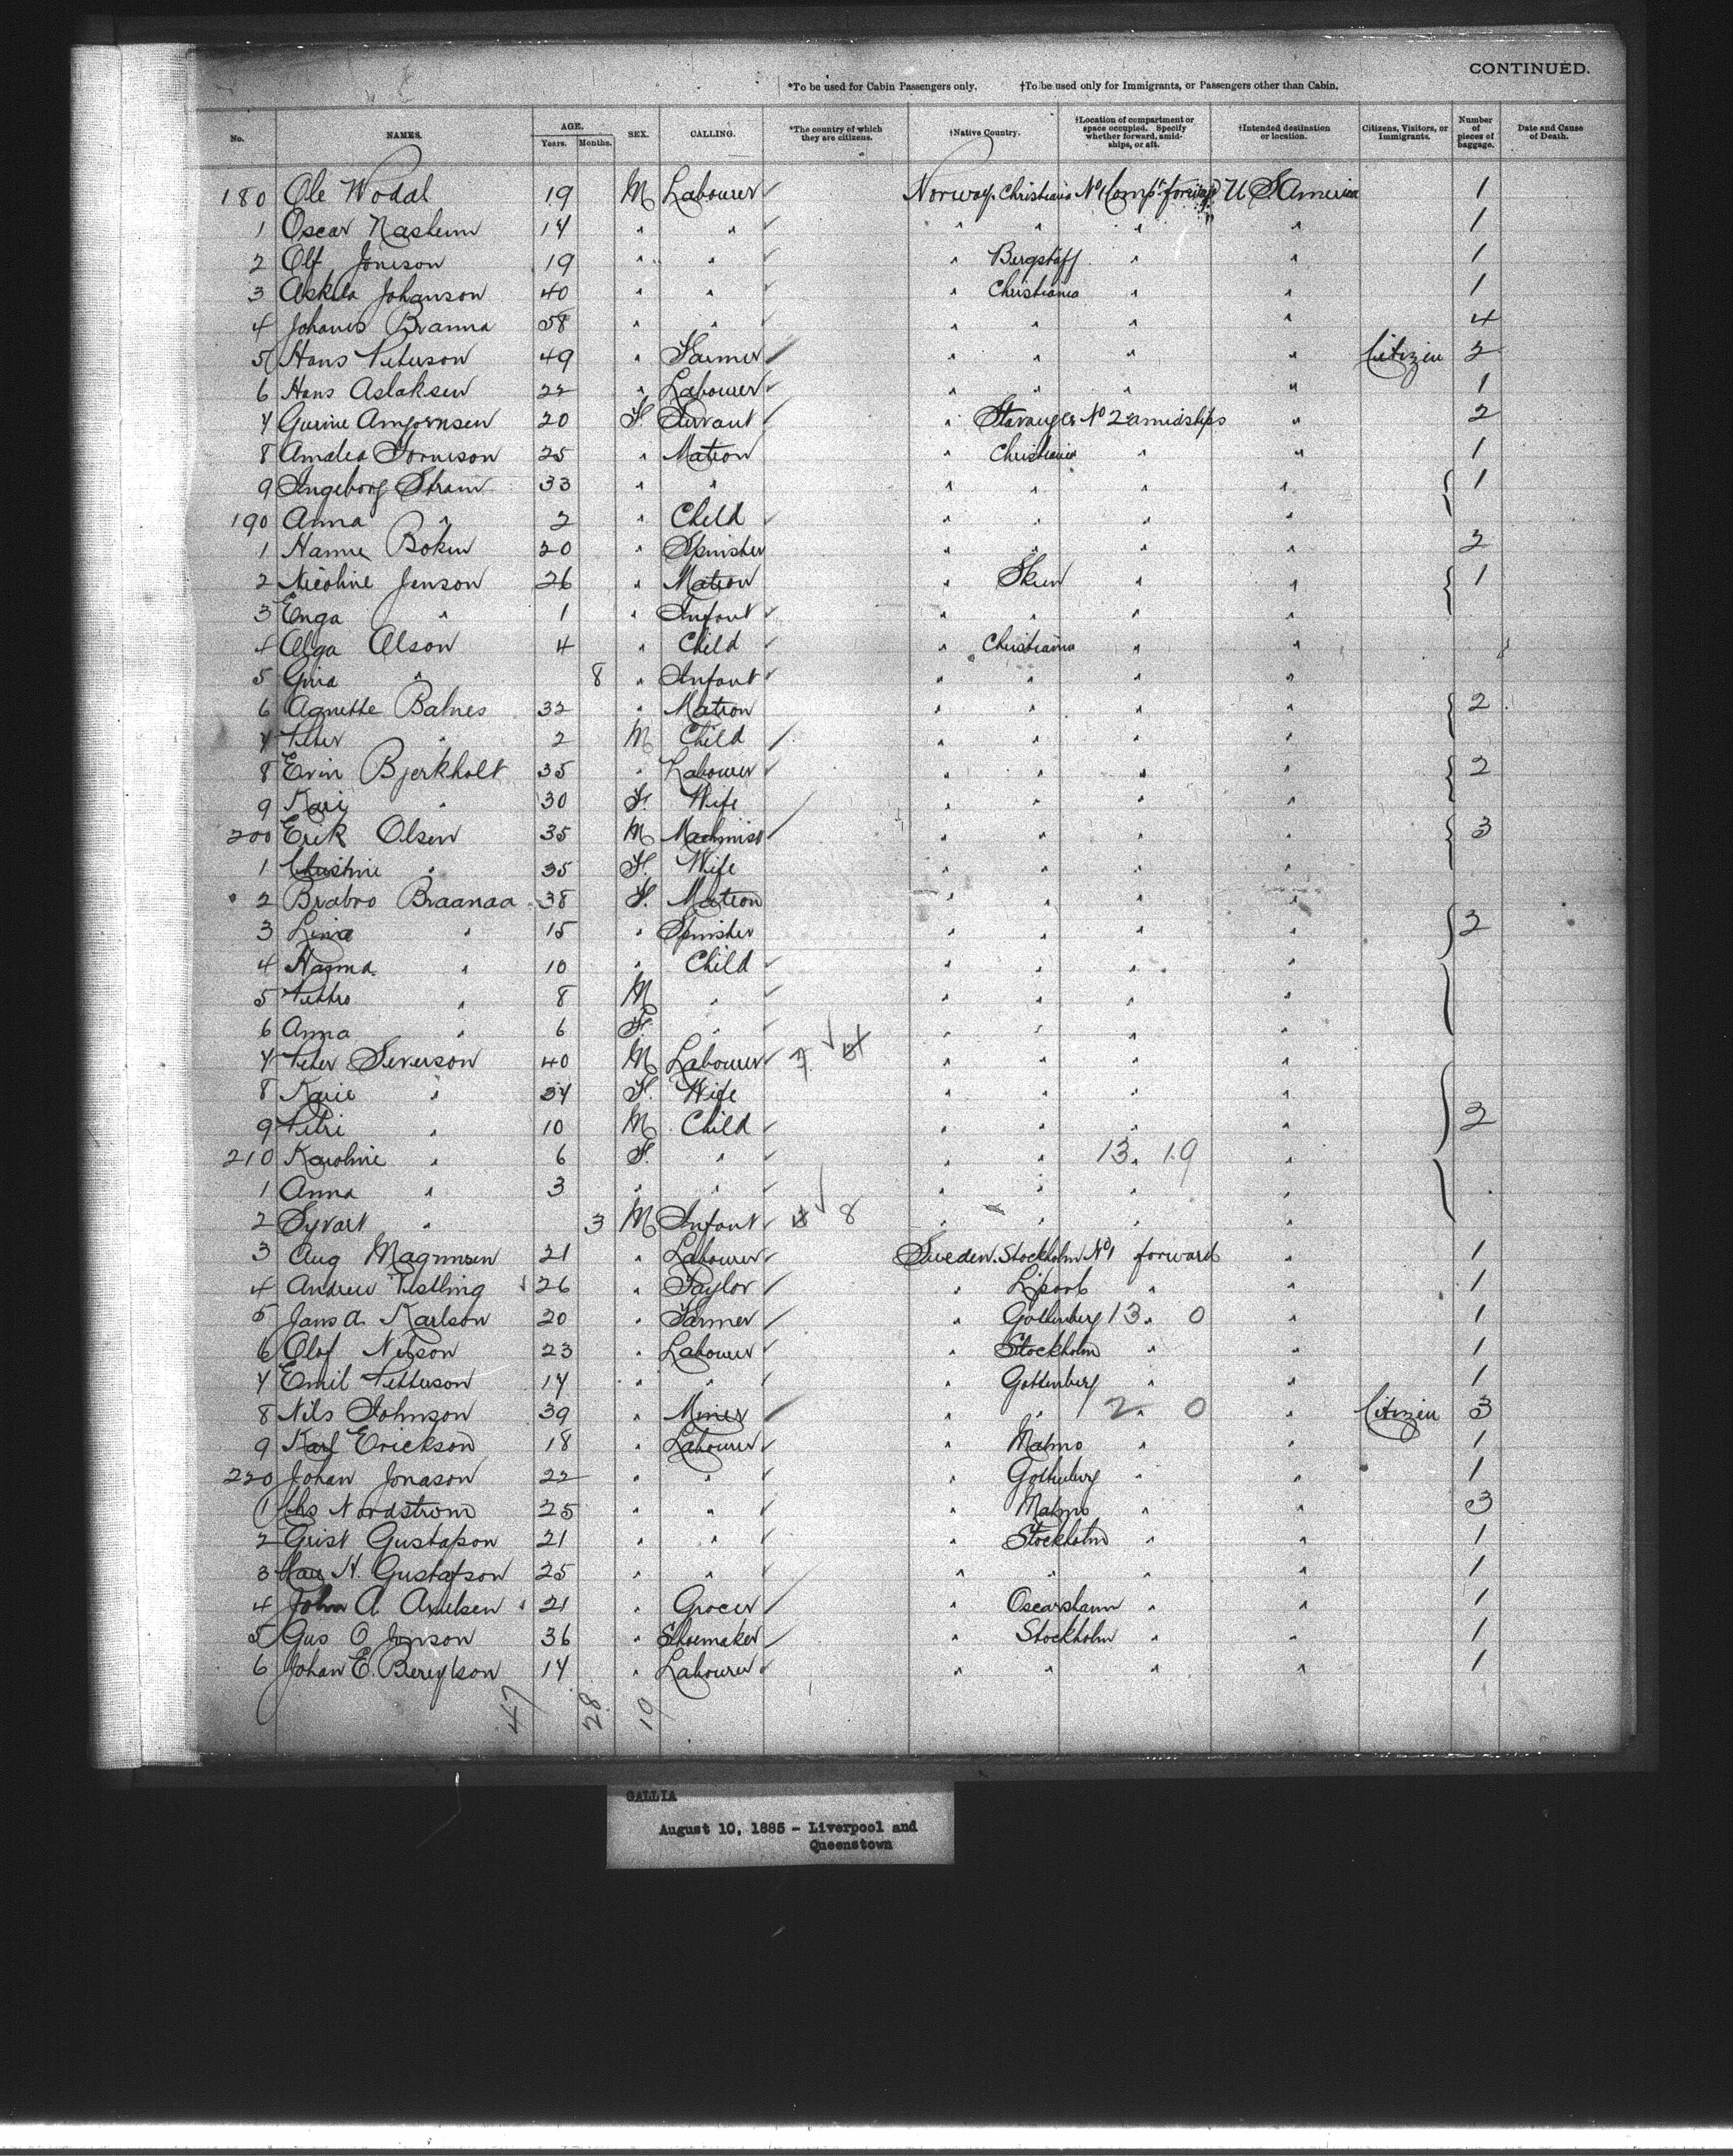 CONTINUED.
*To be used for Cabin Passengers only. †To be used only for Immigrants, or Passengers other than Cabin.
No. NAMES. AGE. Years. Months. SEX. CALLING. *The country of which they are citizens. †Native Country. †Location of compartment or space occupied. Specify whether forward, amidships, or aft. †Intended destination or location. Citizens, Visitors, or Immigrants. Number of pieces of baggage. Date and Cause of Death.
180 Ole Wodal 19 M Labourer Norway. Christiania No 1 Compt forward U S America 1
1 Oscar Nasheim 14 " " " " " " 1
2 Olf Joneson 19 " " " Bergstaff " " 1
3 Askila Johanson 40 " " " Christiania " " 1
4 Johanes Branna 58 " " " " " " 4
5 Hans Peterson 49 " Farmer " " " " Citizen 2
6 Hans Aslaksen 22 " Labourer " " " " 1
7 Gurine 20 F. Servant " Stavanger No 2 amidships " 2
8 Amalia 25 " Matron " Christiania " " 1
9 Ingeborg Stram 33 " " " " " " 1
190 Anna " 2 " Child " " " "
1 Hanne Boken 20 " Spinster " " " " 2
2 Nicoline Jenson 26 " Matron " Skien " " 1
3 Enga " 1 " Infant " " " "
4 Olga Olson 4 " Child " Christiania " "
5 Gina " 8 " Infant " " " "
6 Agnette Balnes 32 " Matron " " " " 2
7 Peter " 2 M Child " " " "
8 Evin Bjerkholt 35 " Labourer " " " " 2
9 Kari " 30 F. Wife " " " "
200 Erik Olsen 35 M Machinist " " " " 3
1 Christine " 35 F. Wife " " " "
2 Brabro Braanaa 38 F. Matron " " " "
3 Lina " 15 " Spinster " " " " 2
4 Hagma " 10 " Child " " " "
5 Pettro " 8 M " " " " "
6 Anna " 6 F. " " " " "
7 Peter Severson 40 M Labourer " " " "
8 Karie " 34 F. Wife " " " "
9 Petri " 10 M Child " " " " 2
210 Karoline " 6 F. " " " 13. 19 "
1 Anna " 3 " " " " " "
2 Syvart " 3 M Infant 8 " " " "
3 Aug Magnusen 21 " Labourer Sweden. Stockholm No 1 forward " 1
4 Andrew 26 " Taylor " " " 1
5 Jans A. Karlson 20 " Farmer " Gothenberg 13. 0 " 1
6 Olof Nilson 23 " Labourer " Stockholm " " 1
7 Emil Petterson 14 " " " Gottenberg " " 1
8 Nils Johnson 39 " Miner " " 2. 0 " Citizen 3
9 Karl Erickson 18 " Labourer " Malmo " " 1
220 Johan Jonason 22 " " " Gothenberg " " 1
1 Chs Nordstrom 25 " " " Malmo " " 3
2 Grist Gustafson 21 " " " Stockholm " " 1
3 H. Gustafson 25 " " " " " " 1
4 John A. Axelsen 21 " Grocer " Oscarshamn " " 1
5 Gus O Jonson 36 " Shoemaker " Stockholm " " 1
6 Johan E. 14 " Labourer " " " " 1
47 28 19
GALLIA
August 10, 1885 - Liverpool and
Queenstown